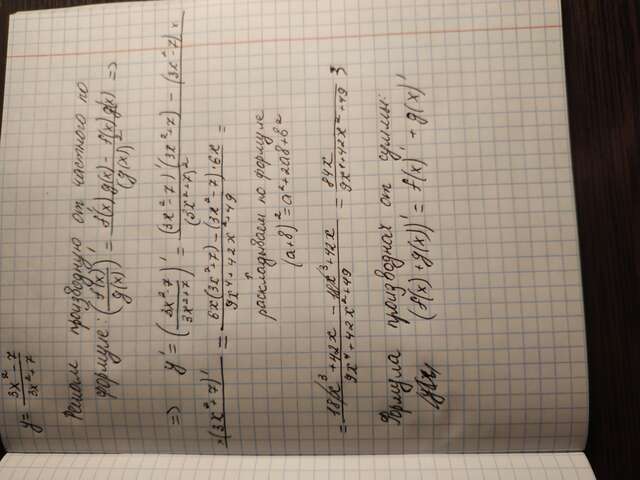 y = (3x² - 7)/(3x² + 7)
Решаем производную от частного по
формуле: (f(x)/g(x))' = (f'(x)g(x) - f(x)g'(x))/(g(x))² =>
=> y' = ((3x² - 7)/(3x² + 7))' = ((3x² - 7)'(3x² + 7) - (3x² - 7) ×)/(3x² + 7)²
×(3x² + 7)' = (6x(3x² + 7) - (3x² - 7)·6x)/(9x⁴ + 42x² + 49) =
раскладываем по формуле
(a + b)² = a² + 2ab + b²
= (18x³ + 42x - 18x³ + 42x)/(9x⁴ + 42x² + 49) = 84x/(9x⁴ + 42x² + 49)
Формула производная от суммы:
(f(x) + g(x))' = f(x)' + g(x)'